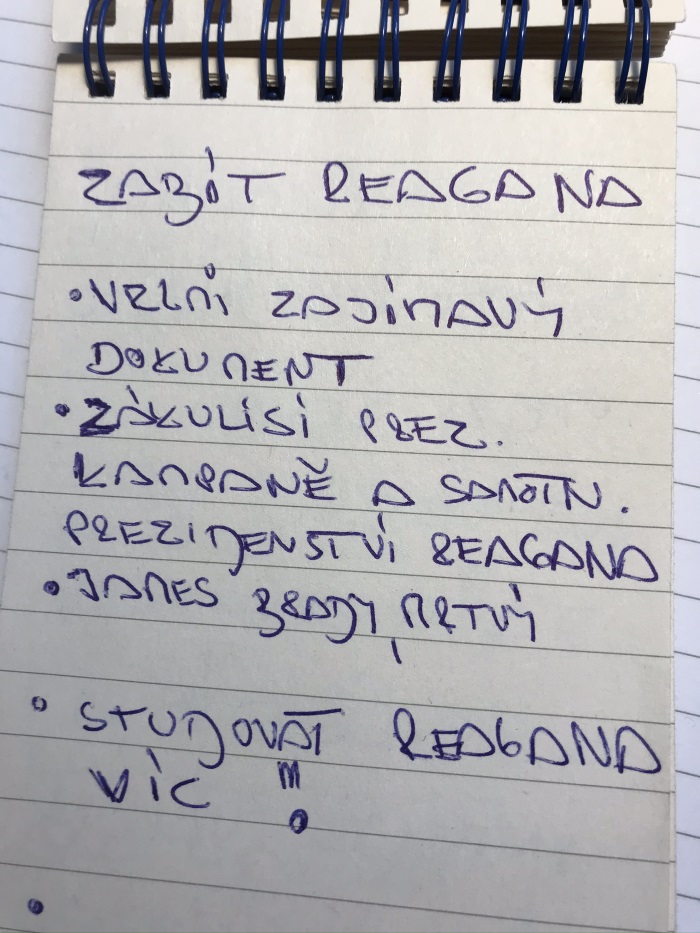 ZABÍT REAGANA
• VELMI ZAJÍMAVÝ
DOKUMENT
• ZÁKULISÍ PREZ.
KAMPANĚ A SAMOTN.
PREZIDENSTVÍ REAGANA
• JAMES BRADY, MRTVÝ
• STUDOVAT REAGANA
VÍC !!!
•